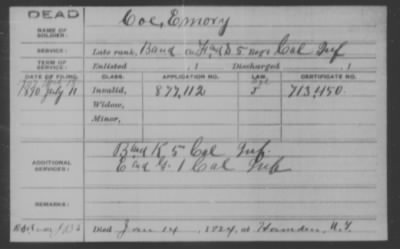 DEAD
NAME OF SOLDIER:
Coe, Emory
SERVICE:
Late rank, Band Co F and S 5 Regt Cal Inf
TERM OF SERVICE:
Enlisted , 1 Discharged , 1
DATE OF FILING. CLASS. APPLICATION NO. LAW. CERTIFICATE NO.
1890 July 11 Invalid, 877,112 713,450
Widow,
Minor,
ADDITIONAL SERVICES:
Band K 5 Cal Inf.
1 Cal Inf
REMARKS:
Died Jan 14, 1924, at Hamden, N.Y.